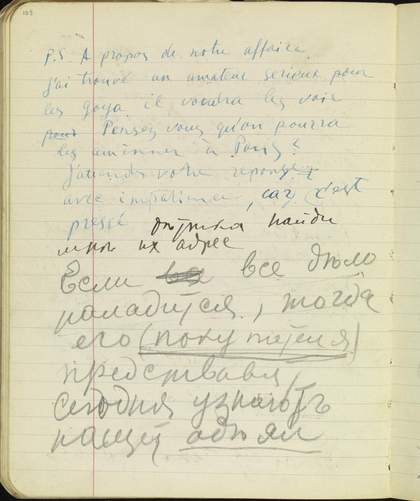 103
P.S. A propos de notre affaire
j'ai trouvé un amateur serieux pour
les goya il voudra les voir
pour Pensez vous qu'on pourra
les amener à Paris?
J'attends votre reponse
avec impatience, car c'est
pressé найди
мне их адрес
Если все дѣло
наладится, тогда
его (покупателя)
представлю
сегодня узнаютъ